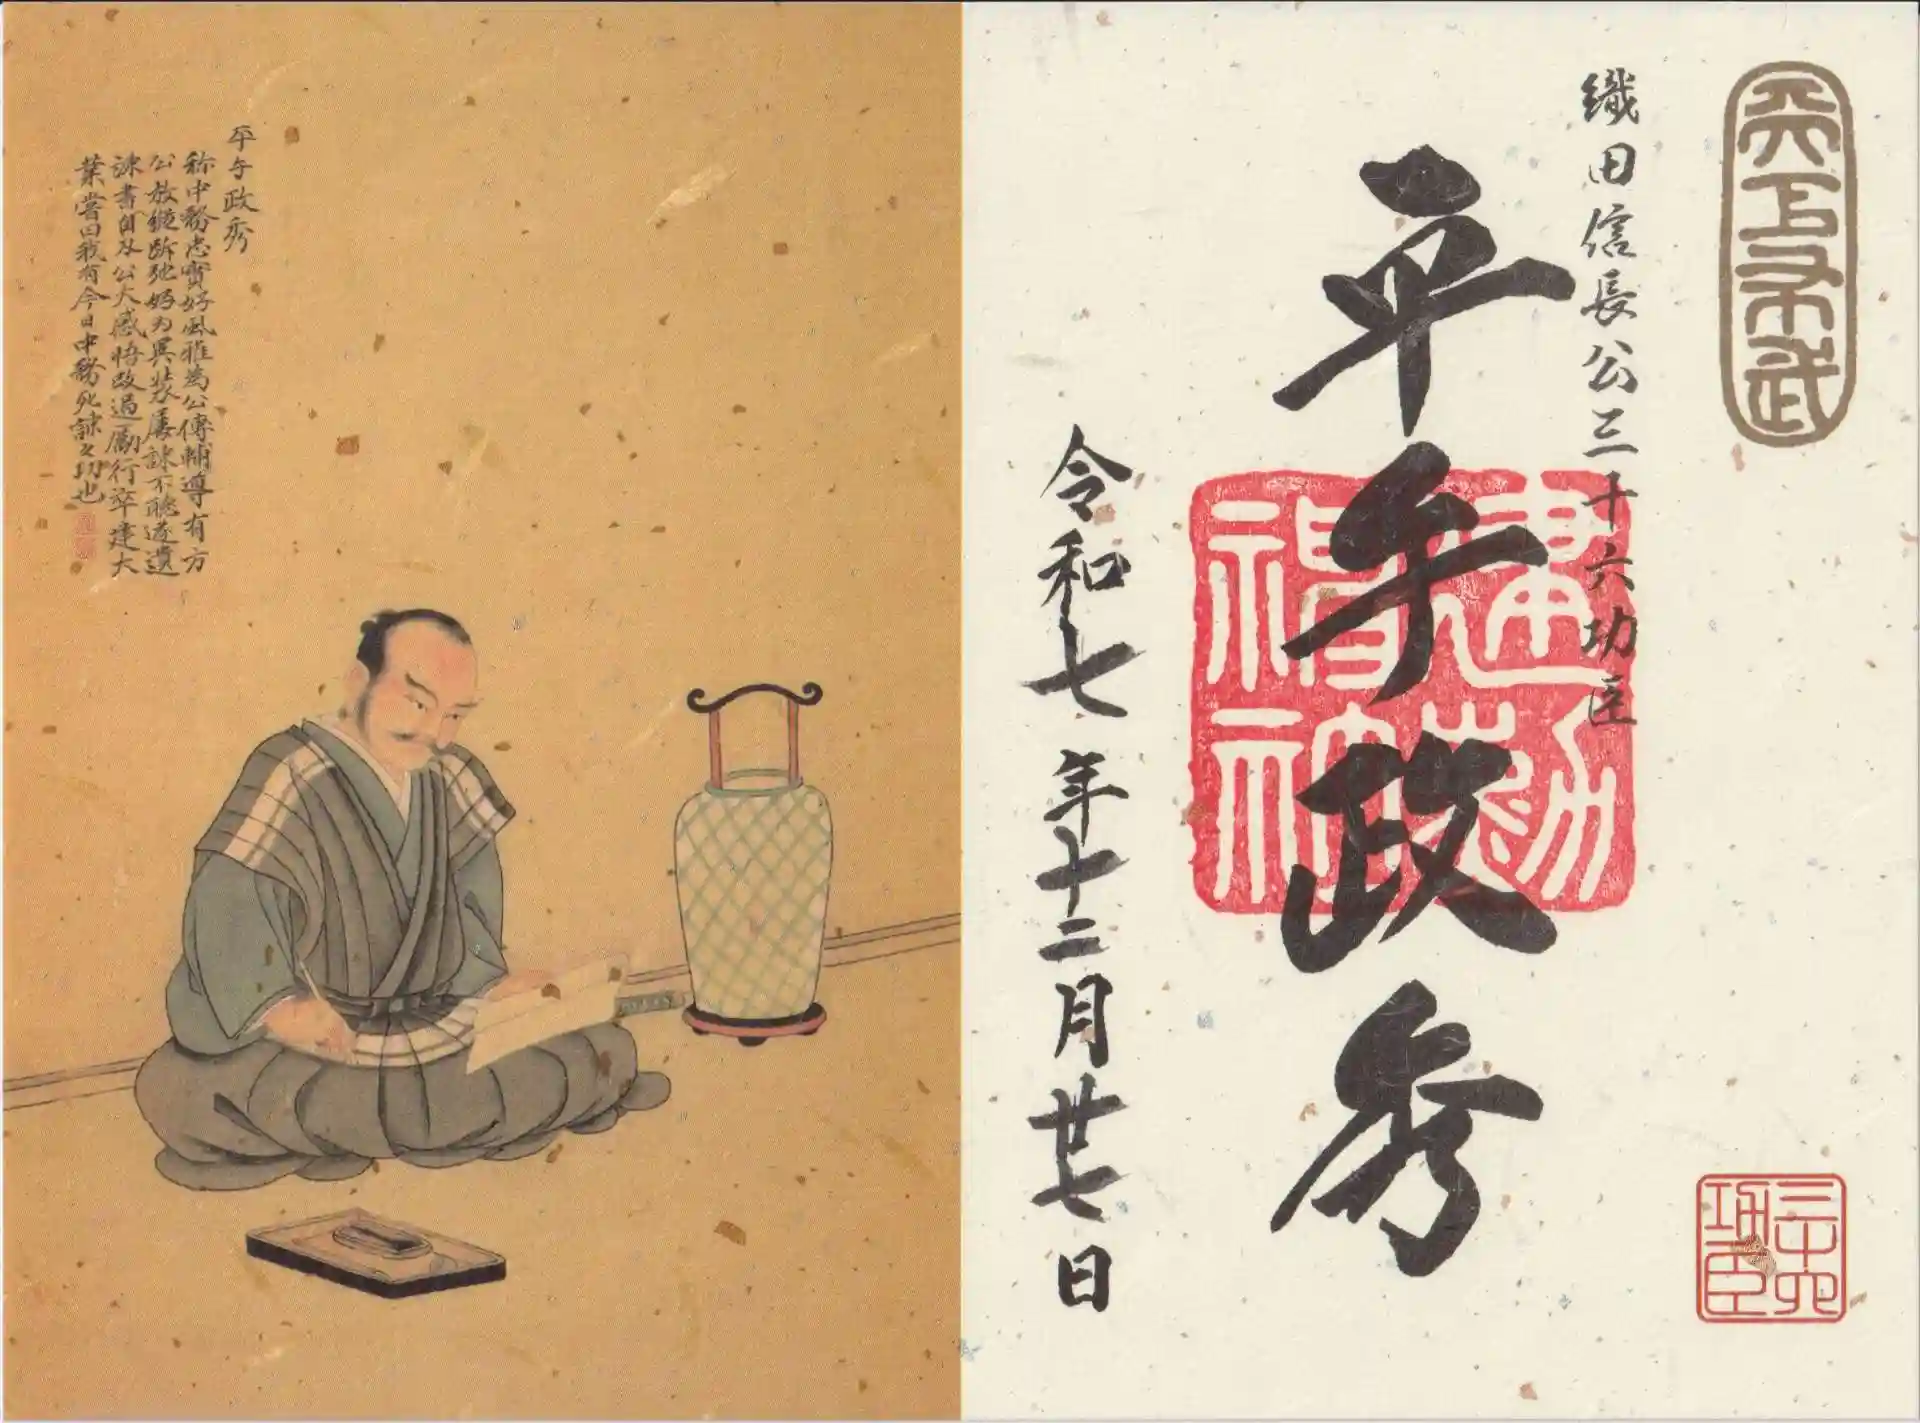 天下布武
織田信長公三十六功臣
平手政秀
建勲神社
令和七年十二月廿七日
三十六功臣
平手政秀
称中務忠實好風雅為公傅輔導有方
公放縦跅弛好为異装屡諌不聴遂遺
諌書自 公大感悟改過励行卒建大
業嘗曰我有今日中務死諌之功也